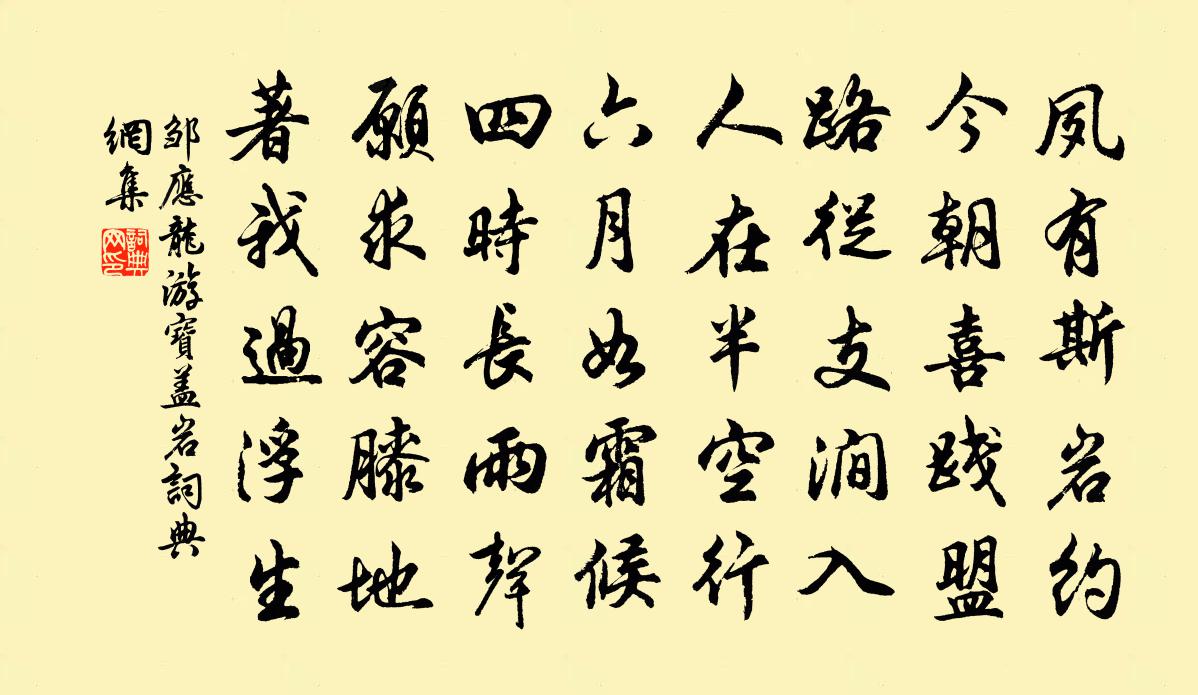 夙有斯岩約
今朝喜踐盟
路從支澗入
人在半空行
六月如霜候
四時長雨聲
願求容膝地
著我過浮生
邹應龍游寶盖岩詞典
網集
詞典
网印